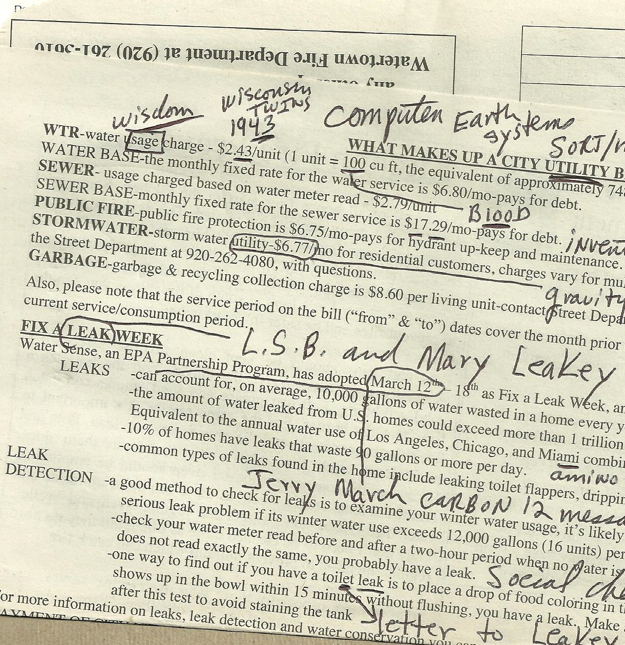 Watertown Fire Department at (920) 261-3610
any
wisdom
Wisconsin
TWINS
1943
Computer Earth
Systems
SORT/
WTR-water usage charge - $2.43/unit (1 unit = 100 cu ft, the equivalent of approximately 74
WHAT MAKES UP A CITY UTILITY B
WATER BASE-the monthly fixed rate for the water service is $6.80/mo-pays for debt.
SEWER- usage charged based on water meter read - $2.79/unit
Blood
SEWER BASE-monthly fixed rate for the sewer service is $17.29/mo-pays for debt.
PUBLIC FIRE-public fire protection is $6.75/mo-pays for hydrant up-keep and maintenance.
invent
STORMWATER-storm water utility-$6.77/mo for residential customers, charges vary for mu
the Street Department at 920-262-4080, with questions.
gravity
GARBAGE-garbage & recycling collection charge is $8.60 per living unit-contact Street Depa
Also, please note that the service period on the bill ("from" & "to") dates cover the month prior
current service/consumption period.
L.S.B. and Mary Leakey
FIX A LEAK WEEK
Water Sense, an EPA Partnership Program, has adopted March 12th - 18th as Fix a Leak Week, an
LEAKS
-can account for, on average, 10,000 gallons of water wasted in a home every y
-the amount of water leaked from U.S. homes could exceed more than 1 trillion
Equivalent to the annual water use of Los Angeles, Chicago, and Miami combin
-10% of homes have leaks that waste 90 gallons or more per day.
amino
-common types of leaks found in the home include leaking toilet flappers, drippin
Jerry March CARBON 12 messa
LEAK
DETECTION
-a good method to check for leaks is to examine your winter water usage, it's likely
serious leak problem if its winter water use exceeds 12,000 gallons (16 units) per
-check your water meter read before and after a two-hour period when no water is
does not read exactly the same, you probably have a leak.
Social che
-one way to find out if you have a toilet leak is to place a drop of food coloring in t
shows up in the bowl within 15 minutes without flushing, you have a leak. Make
after this test to avoid staining the tank
letter to Leakey
For more information on leaks, leak detection and water conservation you